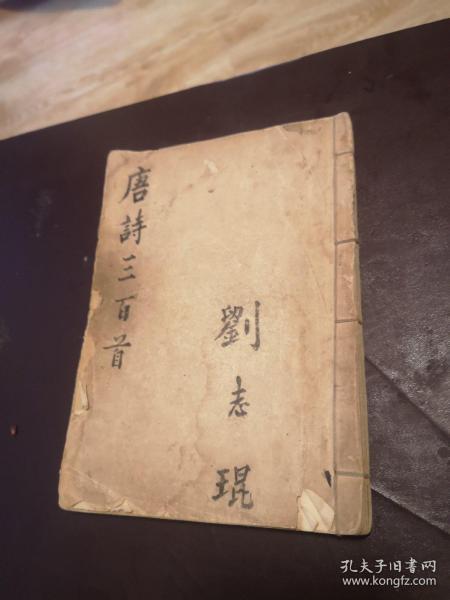 唐詩三百首
劉志琨
孔夫子旧书网
www.kongfz.com